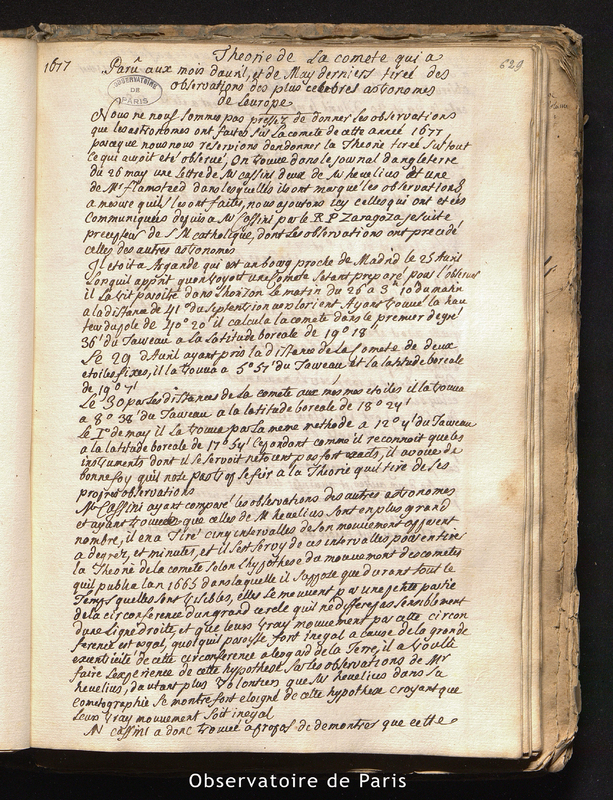 1677
629
Theorie de La comete qui a
Parû aux mois davril, et de May derniers tirée des
observations des plus celebres astronomes
de Leurope
OBSERVATOIRE
DE
PARIS
Nous ne nous sommes pas pressez de donner les observations
que les astronomes ont faites sur La comete de cette année 1677
parceque nous nous reservions den donner la Theorie tirée sur tout
ce qui avoit eté observé, On trouve dans le journal dangleterre
du 26 may une Lettre de Mr cassini deux de Mr hevelius et une
de Mr flamsteed dans lesquelles ils ont marqué les observations
a mesure quils les ont faites, nous ajoutons icy celles qui ont etées
communiquées depuis a Mr Cassini par le R P Zaragoza jesuite
precepteur de S M catholique, dont les observations ont precedé
celles des autres astronomes
Il etoit a Argande qui est un bourg proche de Madrid le 25 Avril
Lorsquil apprit quon voyoit une Comete setant preparé pour l'observer
il La vit paroitre dans Lhorison Le matin du 26 a 3h 10' du matin
a la distance de 41° du septentrion vers lorient Ayant trouvé la hau
teur du pole de 40° 20' il calcula la comete dans le premier degré
36' du Taureau a La latitude boreale de 19° 18'
Le 29 d'Avril ayant pris la distance de La Comete de deux
etoiles fixes, il la trouva a 5° 57' du Taureau et la latitude boreale
de 19° 7'
Le 30 par Les distances de la comete aux mesmes etoiles il la trouva
a 8° 38' du Taureau a la latitude boreale de 18° 24'
Le 1er de may il La trouva par La meme methode a 12° 4' du Taureau
a la latitude boreale de 17° 54' Cependant comme il reconnoit que les
instruments dont il se servoit netoient pas fort exacts, il avoue de
bonne foy quil nose pas trop se fier a la Theorie quil tire de ses
propres observations
Mr Cassini ayant comparé les observations des autres astronomes
et ayant trouvé que celles de Mr hevelius sont en plus grand
nombre, il en a Tiré cinq intervalles de son mouvement apparent
a degrez, et minutes, et il sest servy de ces intervalles pour en tirer
la Theorie de la comete selon l'hypothese du mouvement des cometes
quil publia lan 1665 dans laquelle il suppose que durant tout le
Temps quelles sont visibles, elles se meuvent par une petite partie
de la circonference dun grand cercle quil ne differe pas sensiblement
dune Ligne droite, et que leurs vray mouvement par cette circon
ference est esgal, quoi quil paroisse fort inegal a cause de la grande
excentricité de cette circonference a lesgard de la Terre, il a voulu
faire Lexperience de cette hypothese sur les observations de Mr
hevelius, dautant plus volontiers que Mr hevelius dans sa
cometographie se montre fort eloigné de cette hypothese croyant que
Leurs vray mouvement soit inegal
Mr cassini a donc trouvé a propos de demontrer que cette
Observatoire de Paris